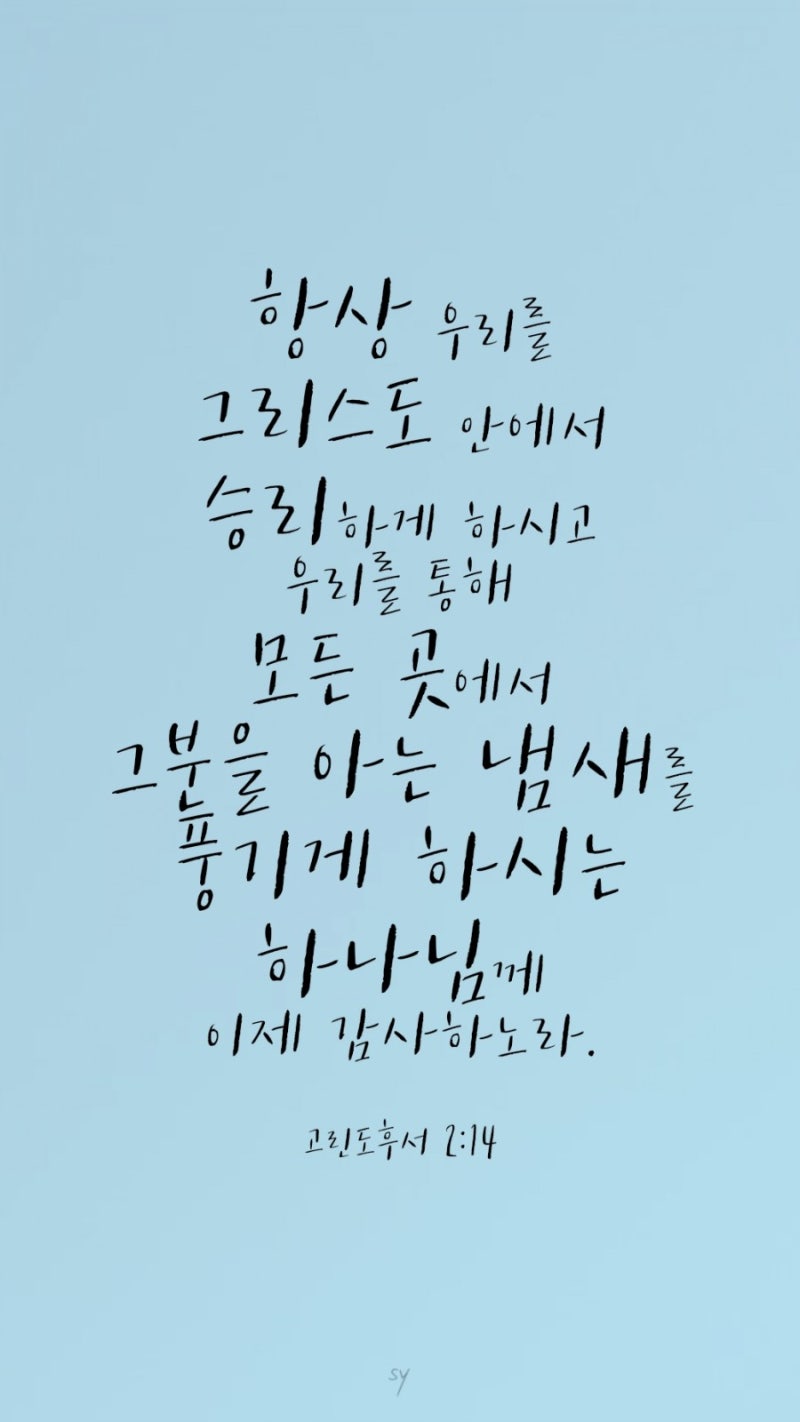 항상 우리를
그리스도 안에서
승리하게 하시고
우리를 통해
모든 곳에서
그분을 아는 냄새를
풍기게 하시는
하나님께
이제 감사하노라.
고린도후서 2:14
sy